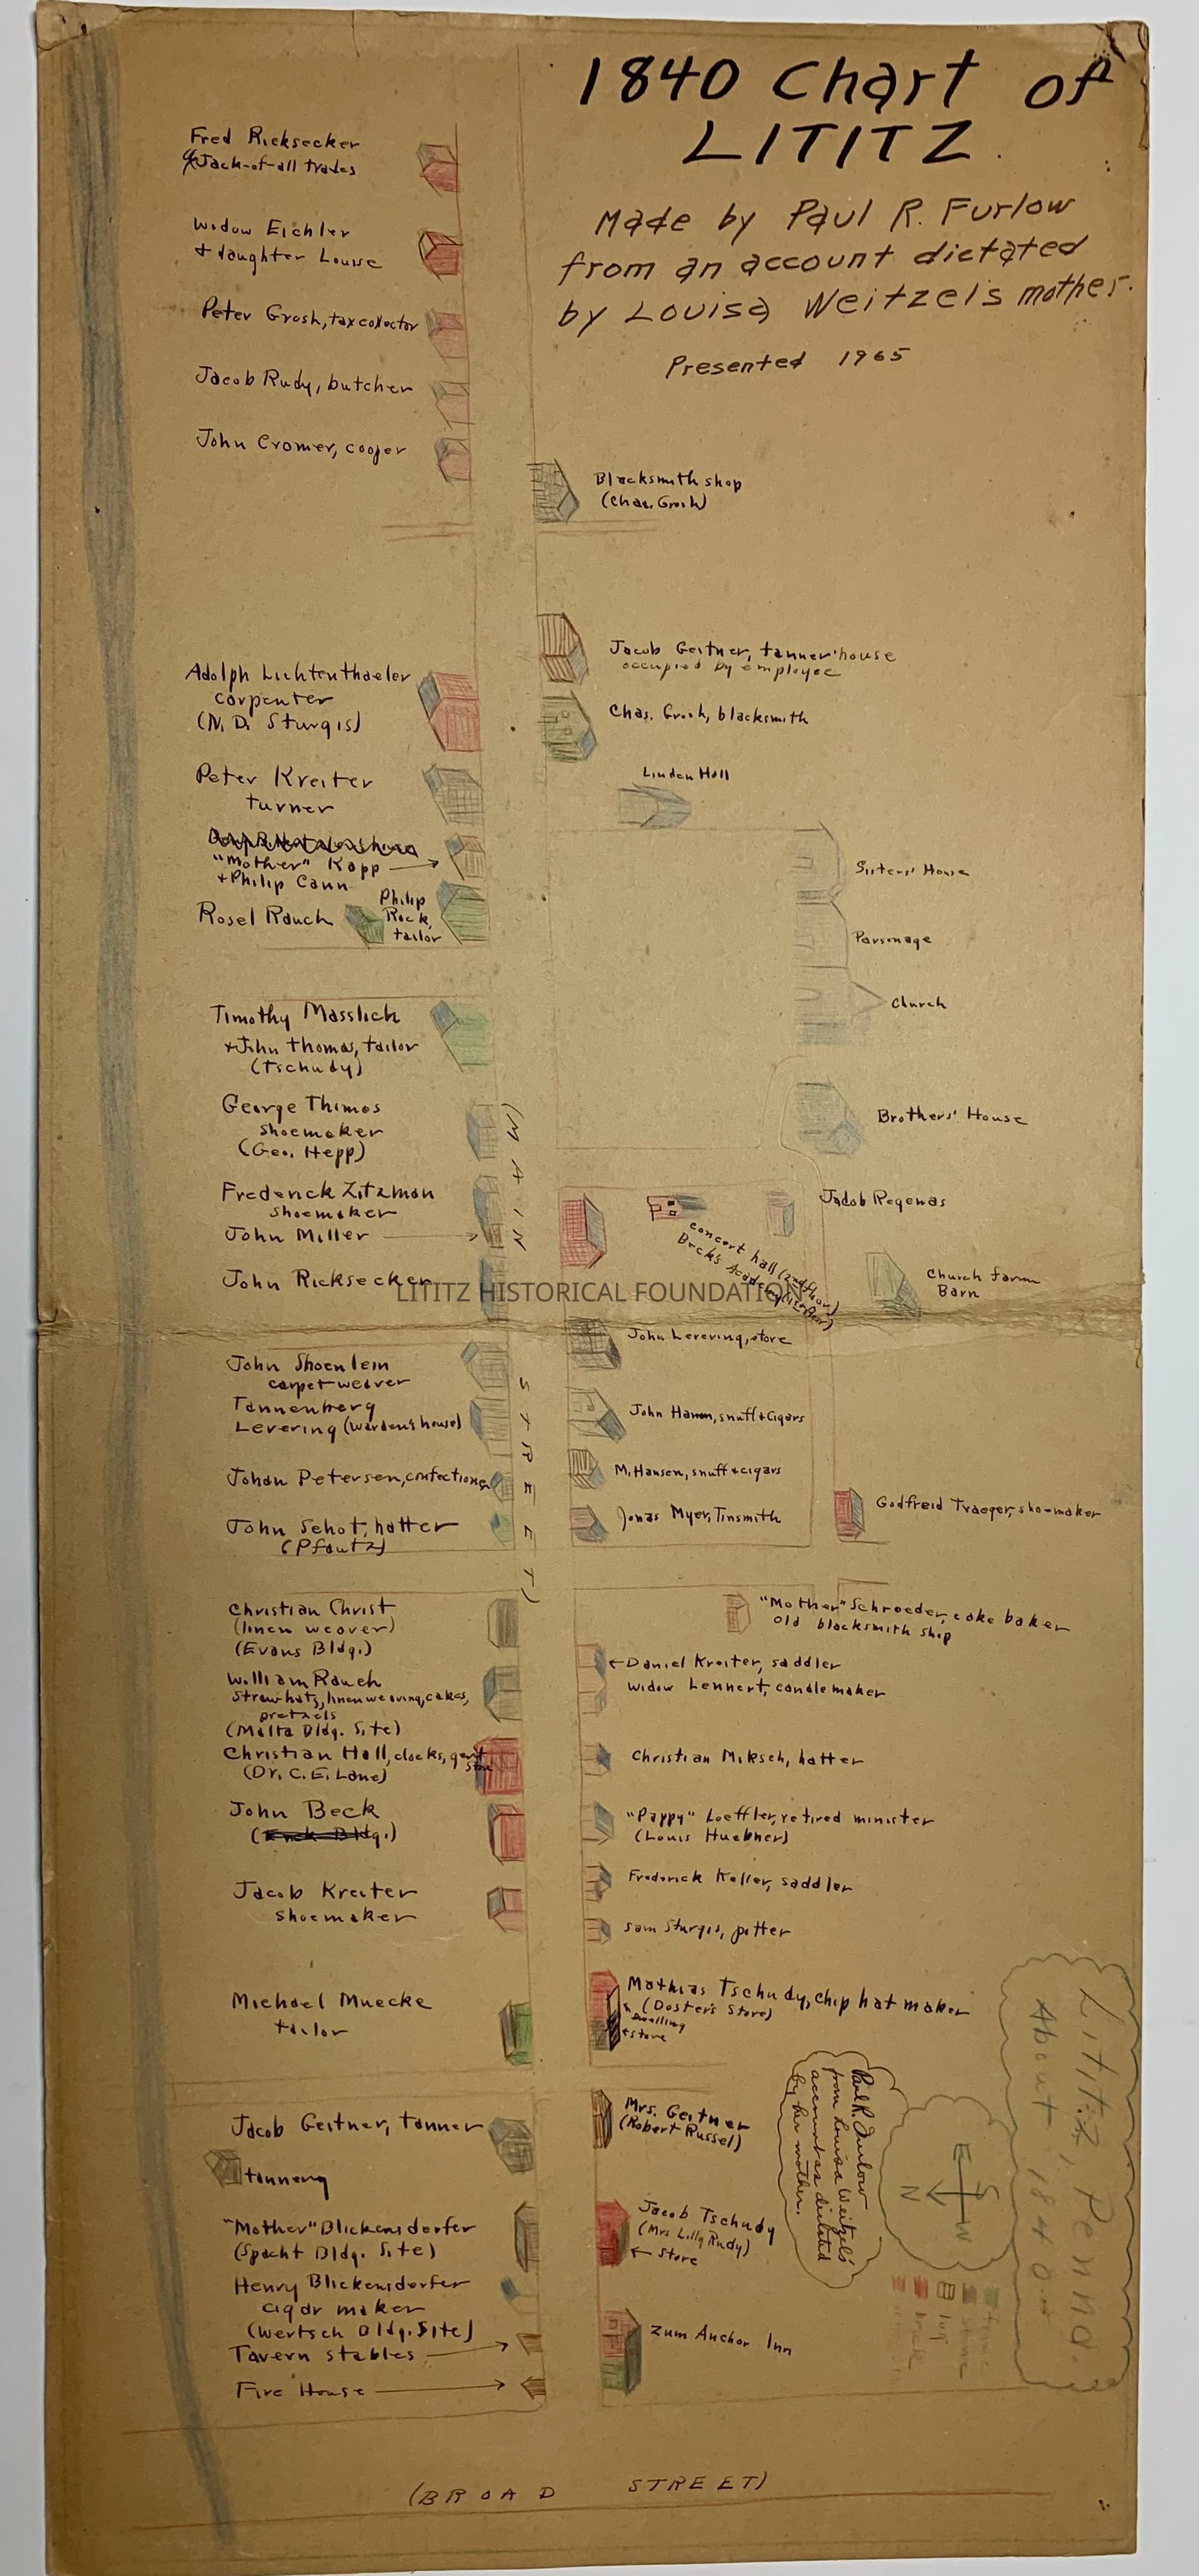 1840 Chart of
LITITZ.
Made by Paul R. Furlow
from an account dictated
by Louisa Weitzel's mother.
Presented 1965
Fred Ricksecker
Jack-of-all trades
Widow Eichler
+ daughter Louise
Peter Grosh, tax collector
Jacob Rudy, butcher
John Cromer, cooper
Blacksmith shop
(Chas. Grosh)
Jacob Geitner, tanner house
occupied by employee
Adolph Lichtenthaeler
carpenter
(N. D. Sturgis)
Chas. Grosh, blacksmith
Linden Hall
Peter Kreiter
turner
"Mother" Kapp
+ Philip Cann
Sisters' House
Rosel Rauch
Philip
Rock,
tailor
Parsonage
Church
Timothy Masslich
+ John Thomas, tailor
(Tschudy)
George Thimos
shoemaker
(Geo. Hepp)
Brothers' House
(MAIN STREET)
Frederick Zitzman
shoemaker
John Miller
Jacob Regenas
concert hall (2nd floor)
Beck's Academy (1st floor)
John Ricksecker
Church farm
Barn
LITITZ HISTORICAL FOUNDATION
John Levering, store
John Shoenlein
carpet weaver
Tannenberg
Levering (Warden's house)
John Hamm, snuff + cigars
Johan Petersen, confectioner
M. Hansen, snuff + cigars
John Schot, hatter
(Pfautz)
Jonas Myer, Tinsmith
Godfreid Traeger, shoemaker
Christian Christ
(linen weaver)
(Evans Bldg.)
"Mother" Schroeder, cake baker
old blacksmith shop
Daniel Kreiter, saddler
Widow Lennert, candle maker
William Rauch
Straw hats, linen weaving, cakes,
pretzels
(Malta Bldg. Site)
Christian Hall, clocks, gent
store
(Dr. C. E. Lane)
Christian Miksch, hatter
John Beck
"Pappy" Loeffler, retired minister
(Louis Huebner)
Jacob Kreiter
shoemaker
Frederick Keller, saddler
Sam Sturgis, potter
Michael Muecke
tailor
Mathias Tschudy, chip hat maker
(Doster's Store)
dwelling
store
Jacob Geitner, tanner
tannery
Mrs. Geitner
(Robert Russel)
"Mother" Blickensderfer
(Spacht Bldg. Site)
Jacob Tschudy
(Mrs Lilly Rudy)
store
Henry Blickensderfer
cigar maker
(Wertsch Bldg. Site)
Tavern stables
Fire House
Zum Anchor Inn
Paul R. Furlow
from Louisa Weitzel's
account as dictated
by her mother.
E
S
N
W
Lititz, Penna.
About 1840
stone
log
brick
(BROAD STREET)